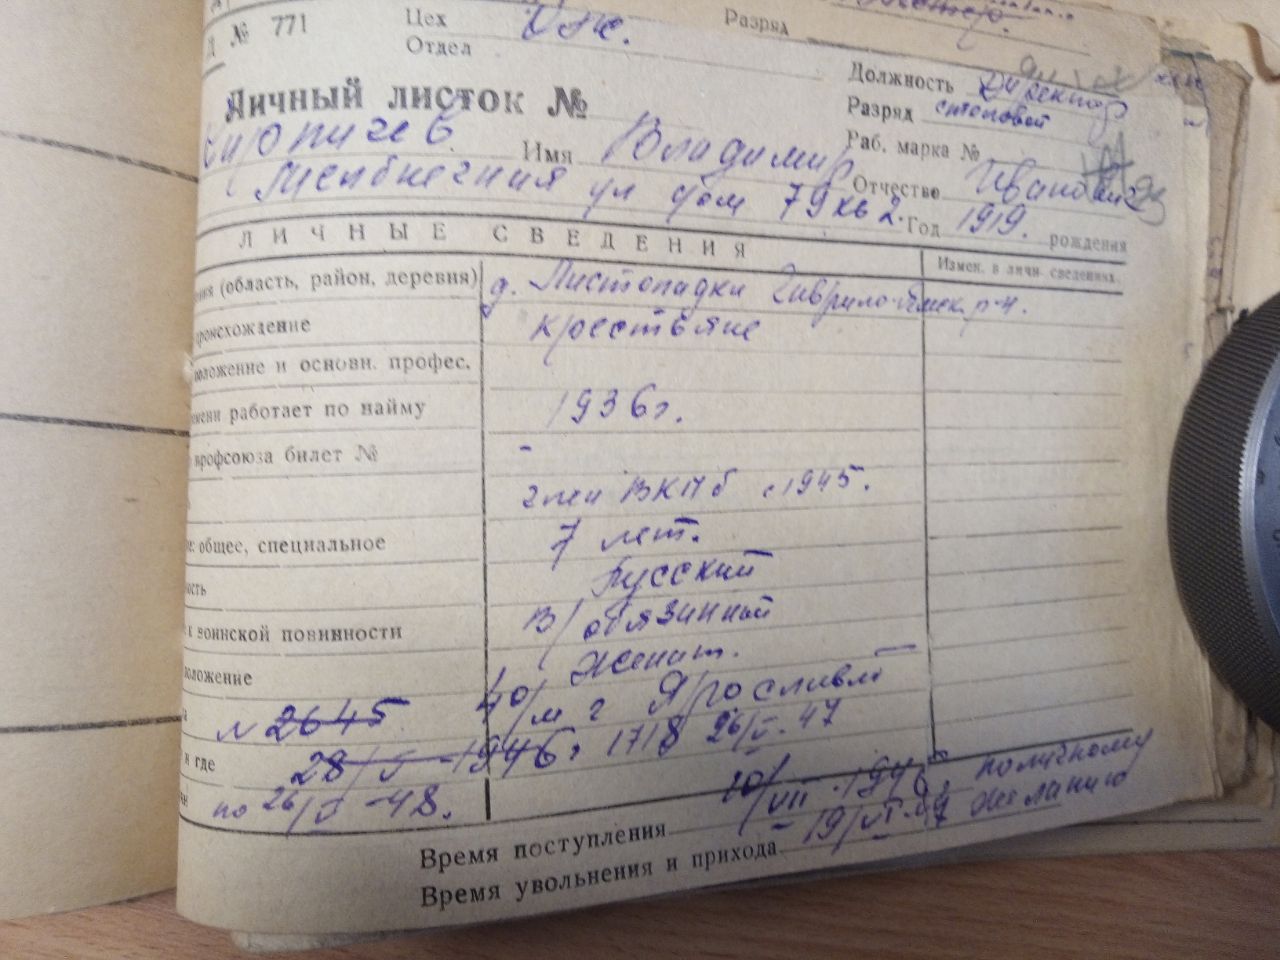 № 771 Цех
Отдел
Разряд
Личный листок №
Должность Директор
Разряд столовой
Раб. марка №
Кирпичев Имя Владимир Отчество Иванович
ул дом 79 кв 2. Год 1919. рождения
ЛИЧНЫЕ СВЕДЕНИЯ Измен. в личн. сведениях.
(область, район, деревня) д. Листопадки Гаврило-Ямск. р-н.
происхождение крестьяне
положение и основн. профес.
работает по найму 1936 г.
профсоюза билет № -
член ВКПб с 1945.
общее, специальное 7 лет.
Русский
к воинской повинности В/обязанный
положение женат.
№ 2645 г Ярославль
и где 28/V-1946г 1718 26/V-47
по 26/V-48.
Время поступления 10/VII-1946г
Время увольнения и прихода -19/VI-49 по личному желанию